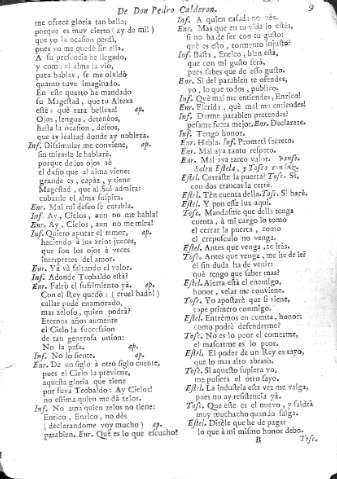 De Don Pedro Calderon. 9
me ofrece gloria tan bella;
porque es muy cierto (ay de mi!)
que yo la ocasion perdi,
pues yo me quedè sin ella.
A su presencia he llegado,
y como el alma la viò,
para hablar, se me olvidò
quanto trave imaginado.
En este quarto ha mandado
su Magestad, que tu Alteza
estè: què rara belleza! ap.
Ojos, lengua, deteneos,
halla la ocasion, deseos,
que es lealtad donde ay nobleza.
Inf. Dissimular me conviene, ap.
sin mirarle le hablarè,
porque de los ojos sè
el daño que al alma viene:
grande es, capàz, y tiene
Magestad, que al Sol admira:
cobarde el alma suspira.
Enr. Mal mi daño se entabla.
Inf. Ay, Cielos, aun no me habla!
Enr. Ay, Cielos, aun no me mira!
Inf. Quiero apurar el temor, ap.
haciendo à los zelos jueces,
que son los ojos à veces
interpretes del amor.
Enr. Yà và faltando el valor.
Inf. Adonde Teobaldo està?
Enr. Faltò el sufrimiento yà. ap.
Con el Rey quedò: (cruel hado!)
callar pude enamorado,
mas zeloso, quien podrà?
Eternos años aumente
el Cielo la succession
de tan generosa union:
No la pesa. ap.
Inf. No lo siente. ap.
Enr. De un siglo à otro siglo cuente,
pues el Cielo la previene,
aquesta gloria que tiene
por suya Teobaldo: Ay Cielos!
no estima quien me dà zelos.
Inf. No ama quien zelos no tiene:
Enrico, Enrico, no dès
(declarandome voy mucho) ap.
parabien. Enr. Què es lo que escucho?
Inf. A quien casada no vès.
Enr. Mas que en tu vida lo estès,
si no ha de ser con tu gusto:
què es esto, tormento injusto?
Inf. Basta, Enrico, bien està,
que con mi gusto serà,
pues sabes que de esso gusto.
Enr. Si del parabien te ofendes,
yo, lo que todos, publico.
Inf. Què mal me entiendes, Enrico!
Enr. Flerida, què mal me entiendes!
Inf. Darme parabien pretendes?
pesame serà mejor. Enr. Declarate.
Inf. Tengo honor.
Enr. Habla. Inf. Prometì secreto.
Enr. Mal aya tanto respeto.
Enr. Mal aya tanto valor. vanse.
Salen Estela, y Tosco
Estel. Cerraste la puerta? Tosc. Sì,
con dos trancas la cerrè.
Estel. Tèn cuenta della. Tosc. Sì harè.
Estel. Y pon essa luz aqui.
Tosc. Mandasme que della tenga
cuenta, à mi cargo lo tomo
el cerrar la puerta, como
el crepusculo no venga.
Estel. Antes que venga, te iràs.
Tosc. Antes que venga, me he de ir?
èl sin duda ha de venir:
què tengo que saber mas?
Estel. Alerta està el enemigo,
honor, velar me conviene.
Tosc. Yo apostarè que si viene,
tope primero conmigo.
Estel. Entremos en cuenta, honor:
como podrè defenderme?
Tosc. No es lo peor el comerme,
el mascarme es lo peor.
Estel. El poder de un Rey es rayo,
que lo mas alto abrasò.
Tosc. Si aquesto supiera yo,
me pusiera el otro sayo.
Estel. La industria esta vez me valga,
pues no ay resistencia yà.
Tosc. Que este es el nuevo, y saldrà
muy muchacho quando salga.
Estel. Dirèle que he de pagar
lo que à mi mismo honor debo.
B Tosc.